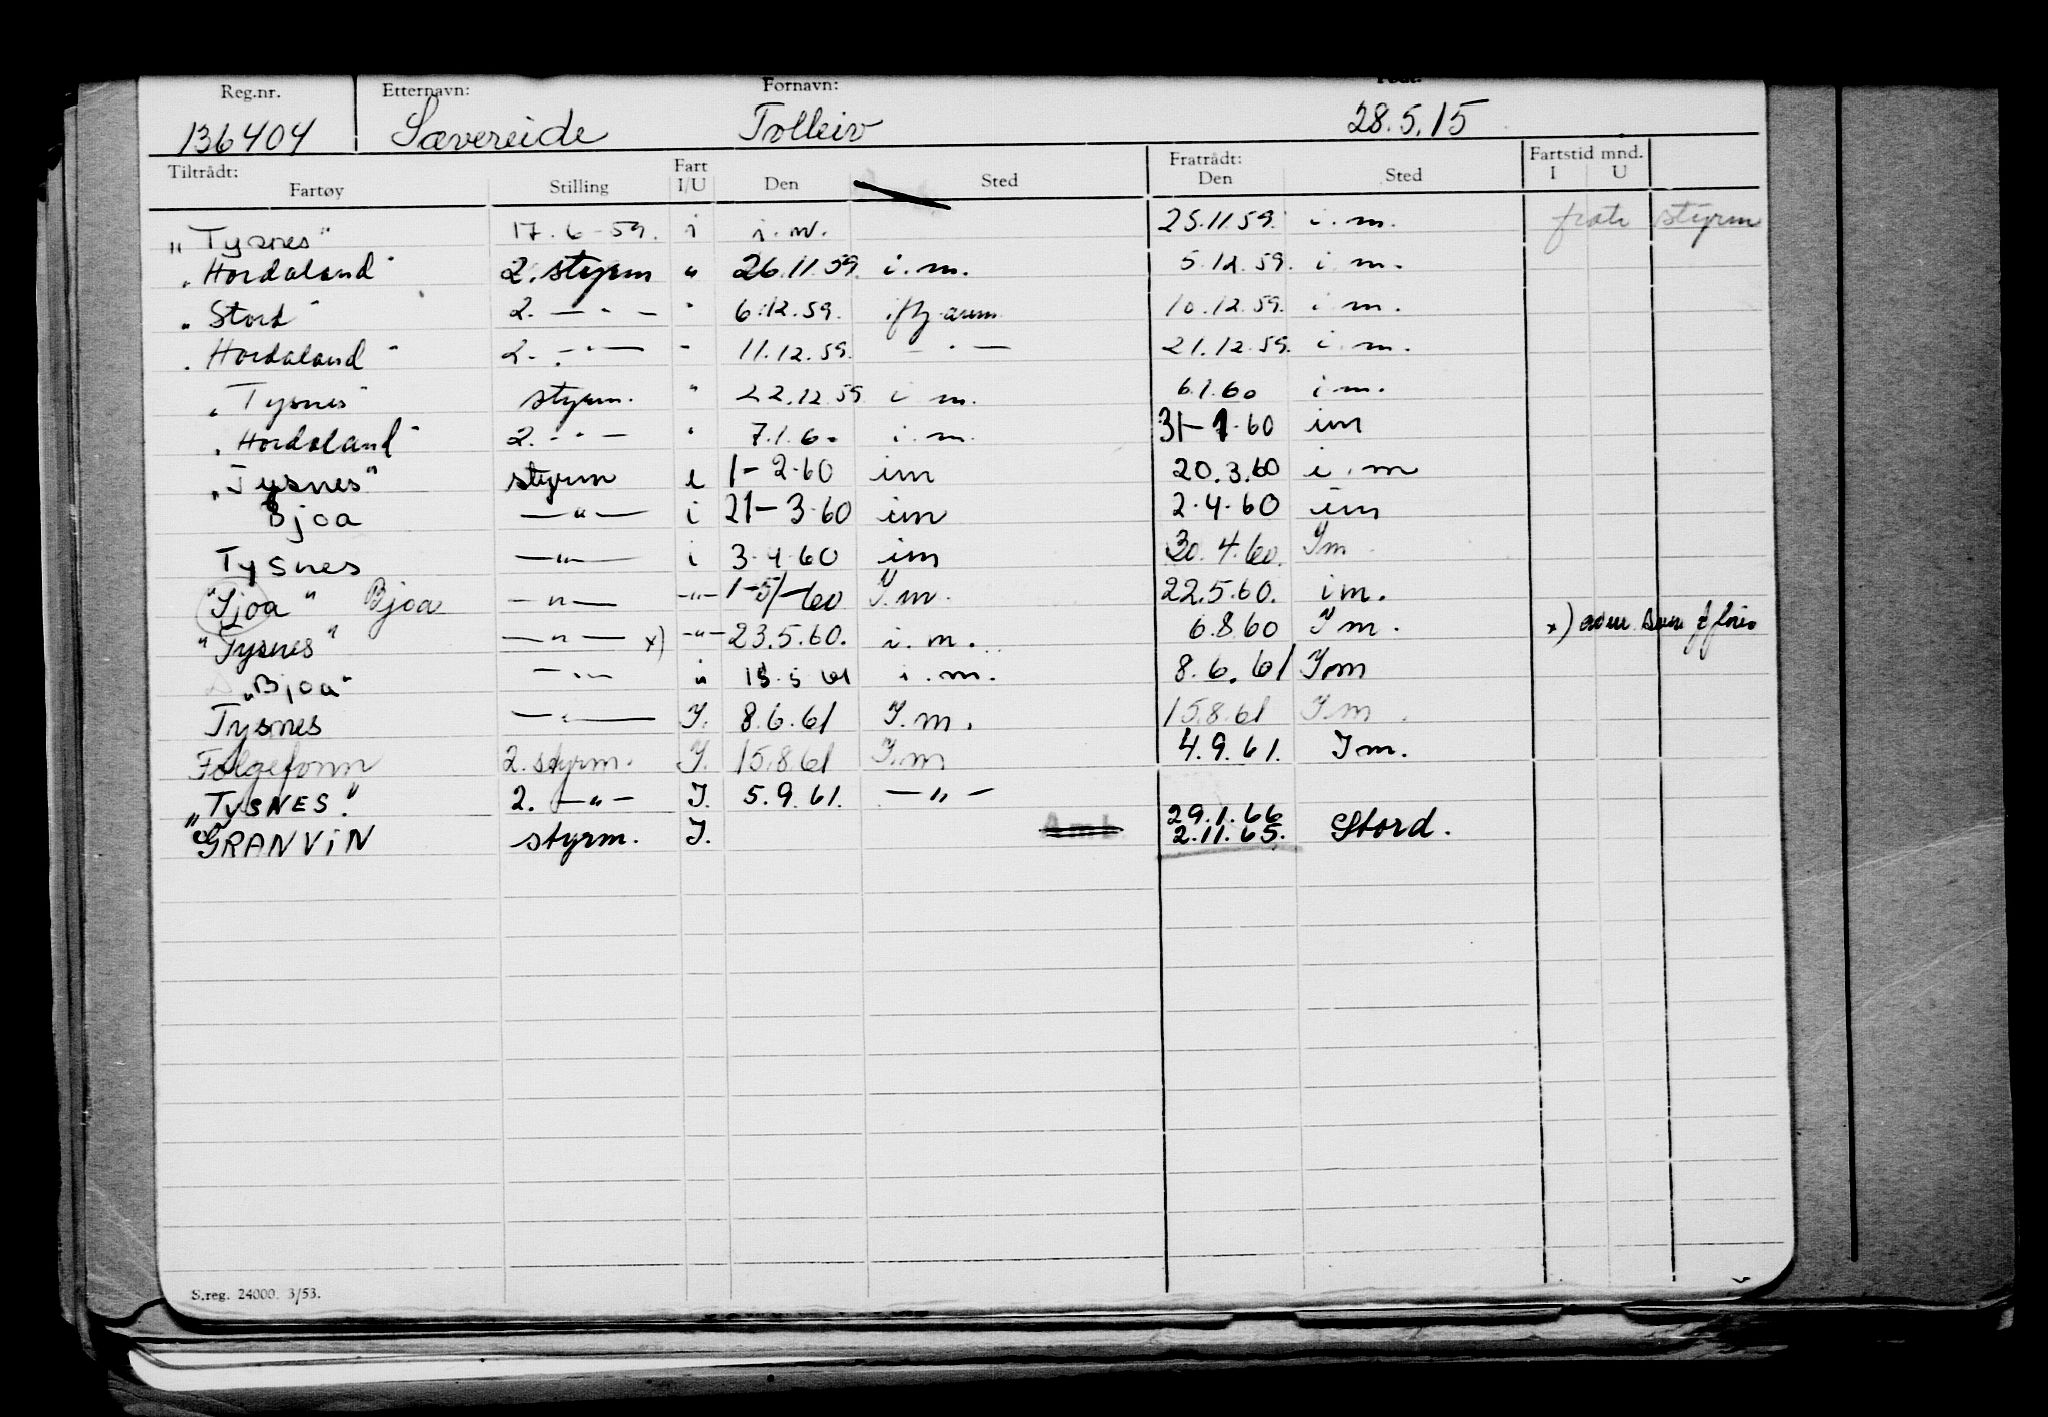 Reg.nr. Etternavn: Fornavn: Født:
136404 Sævereide Tolleiv 28.5.15
Tiltrådt: Fart Fratrådt: Fartstid mnd.
Fartøy Stilling I/U Den Sted Den Sted I U
"Tysnes" 17.6-59. i i.m. 25.11.59. i.m. styrm
"Hordaland" 2. styrm " 26.11.59. i.m. 5.12.59. i.m.
"Stord" 2. — " — " 6.12.59. 10.12.59. i.m.
"Hordaland" 2. — " — " 11.12.59. — " — 21.12.59. i.m.
"Tysnes" styrm. " 22.12.59 i.m. 6.1.60 i m.
"Hordaland" 2. - " — " 7.1.60 i.m. 31-1-60 im
"Tysnes" styrm i 1-2-60 im 20.3.60 i.m
Bjoa — " — i 21-3-60 im 2.4.60 im
Tysnes — " — i 3-4-60 im 30.4.60. Im
"Ijoa" Bjoa — " — - " - 1-5-60 I.m. 22.5.60. im.
"Tysnes" — " — x) - " - 23.5.60. i.m. 6.8.60 I m. x)
"Bjoa" — " — " 5 61 i.m. 8.6.61 I.m
Tysnes — " — I. 8.6.61 I.m. 15.8.61 I.m.
Folgefonn 2. styrm. I. 15.8.61 I.m 4.9.61. I m.
"TYSNES." 2. — " — I. 5.9.61. — " — 29.1.66
GRANVIN styrm. I. 2.11.65. Stord.
S.reg. 24000. 3/53.